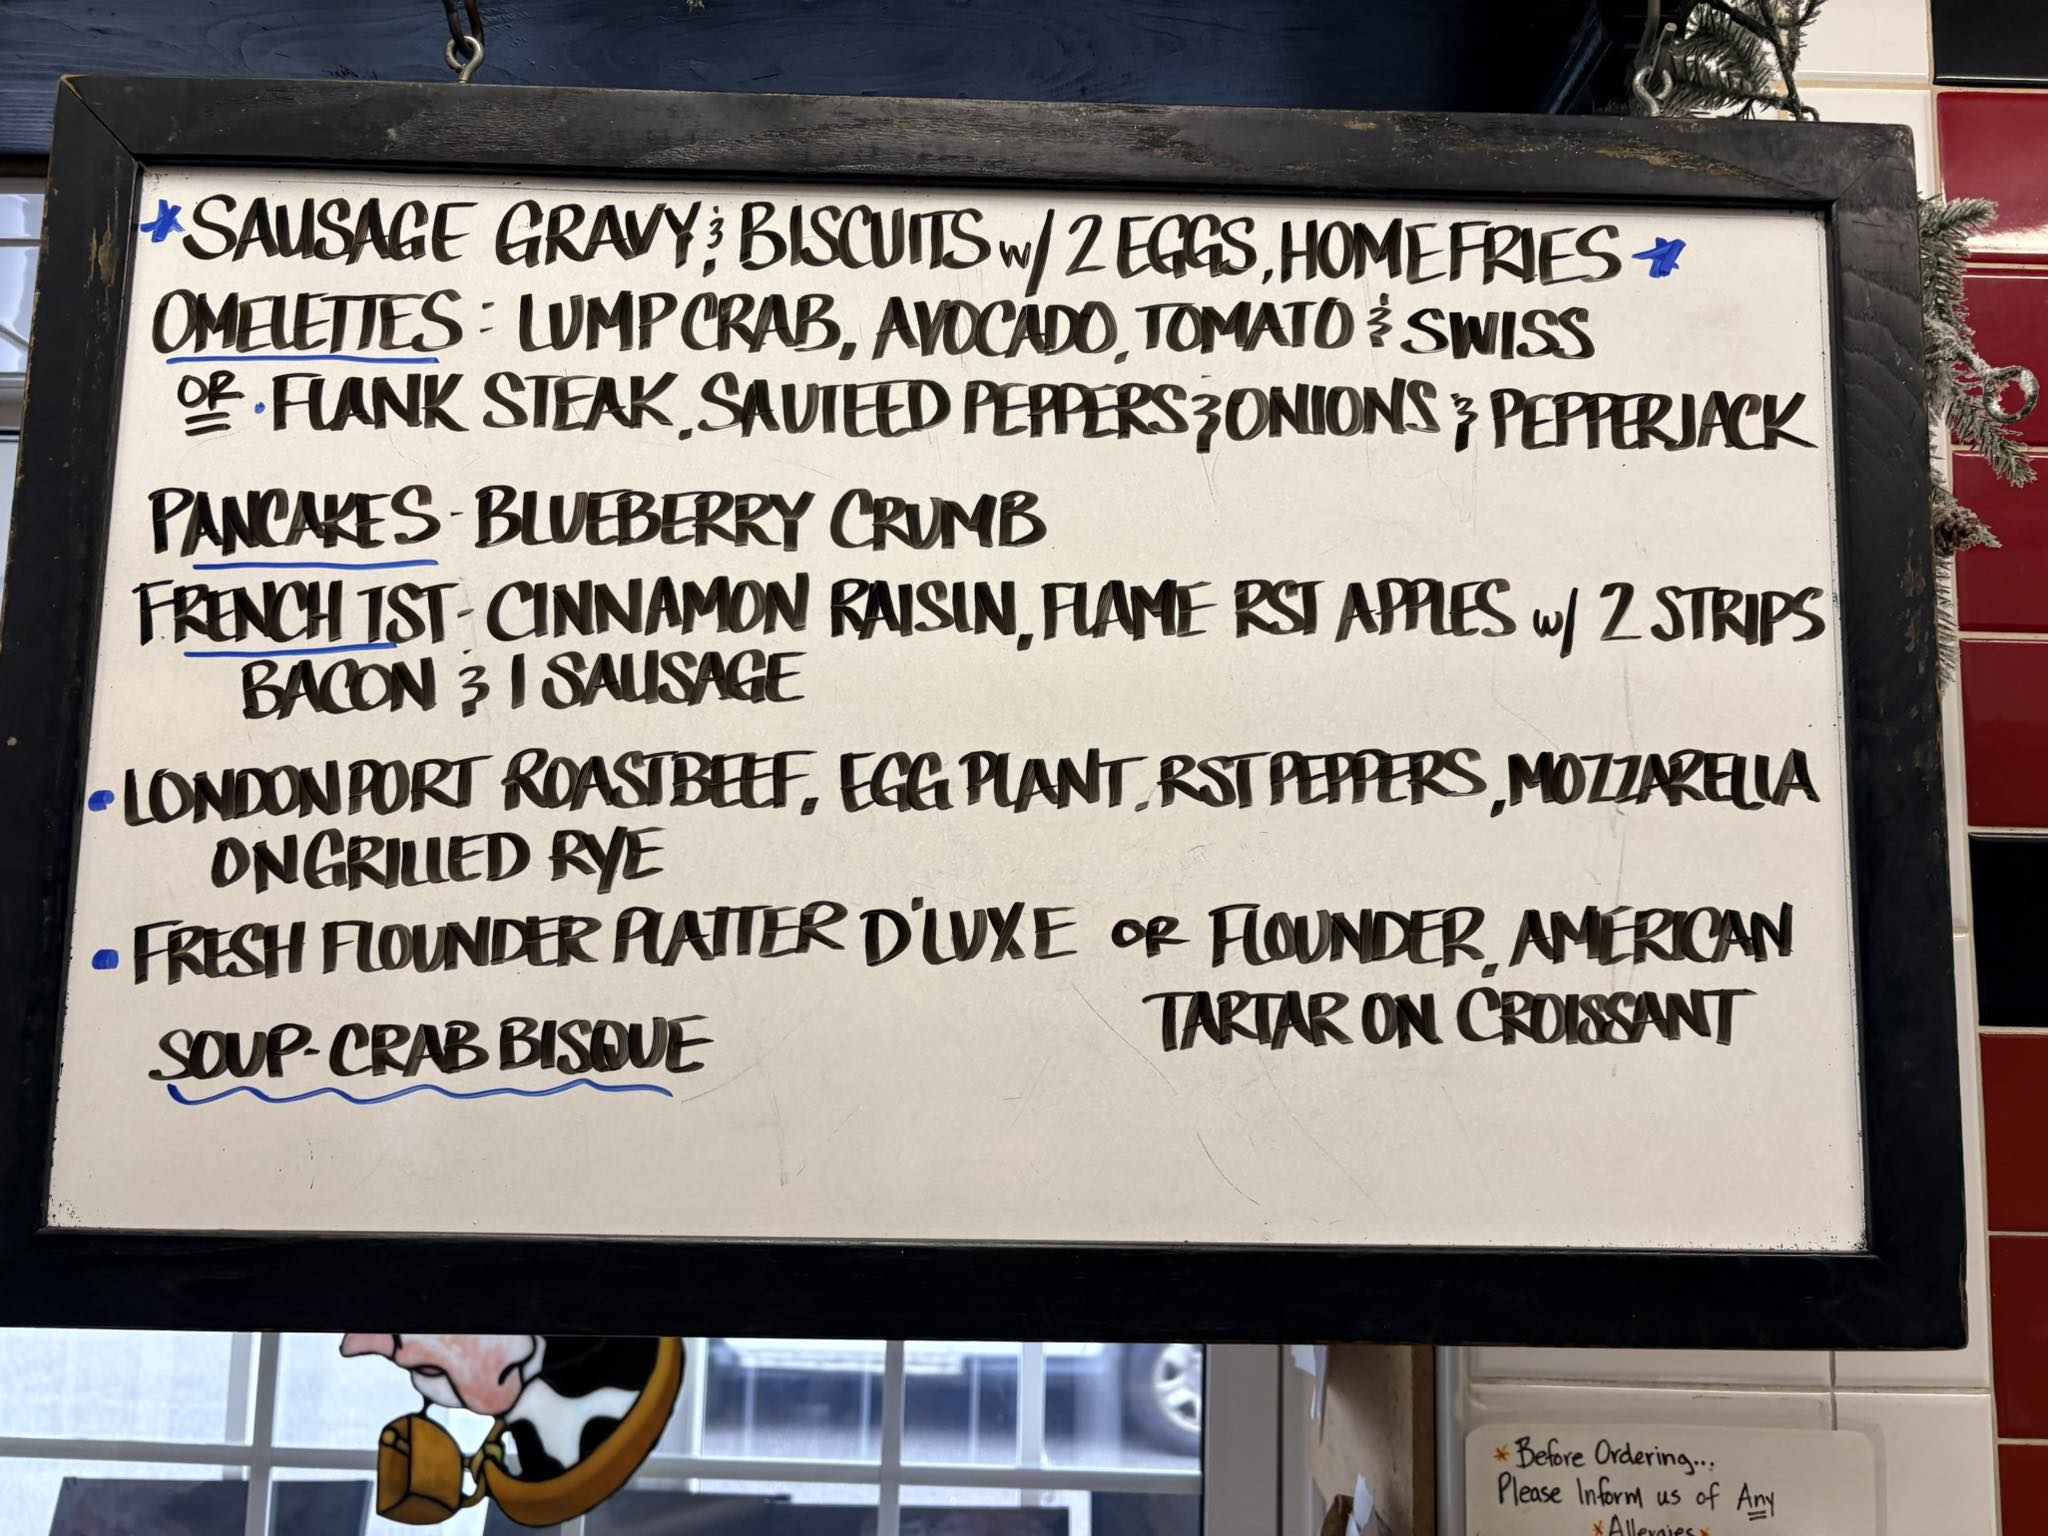 *SAUSAGE GRAVY & BISCUITS w/ 2 EGGS, HOMEFRIES*
OMELETTES: LUMP CRAB, AVOCADO, TOMATO & SWISS
OR • FLANK STEAK, SAUTEED PEPPERS & ONIONS & PEPPERJACK
PANCAKES - BLUEBERRY CRUMB
FRENCH TST - CINNAMON RAISIN, FLAME RST APPLES w/ 2 STRIPS
BACON & 1 SAUSAGE
• LONDONPORT ROASTBEEF, EGG PLANT, RST PEPPERS, MOZZARELLA
ON GRILLED RYE
• FRESH FLOUNDER PLATTER D'LUXE OR FLOUNDER, AMERICAN
TARTAR ON CROISSANT
SOUP - CRAB BISQUE
*Before Ordering...
Please Inform us of Any
*Allergies*